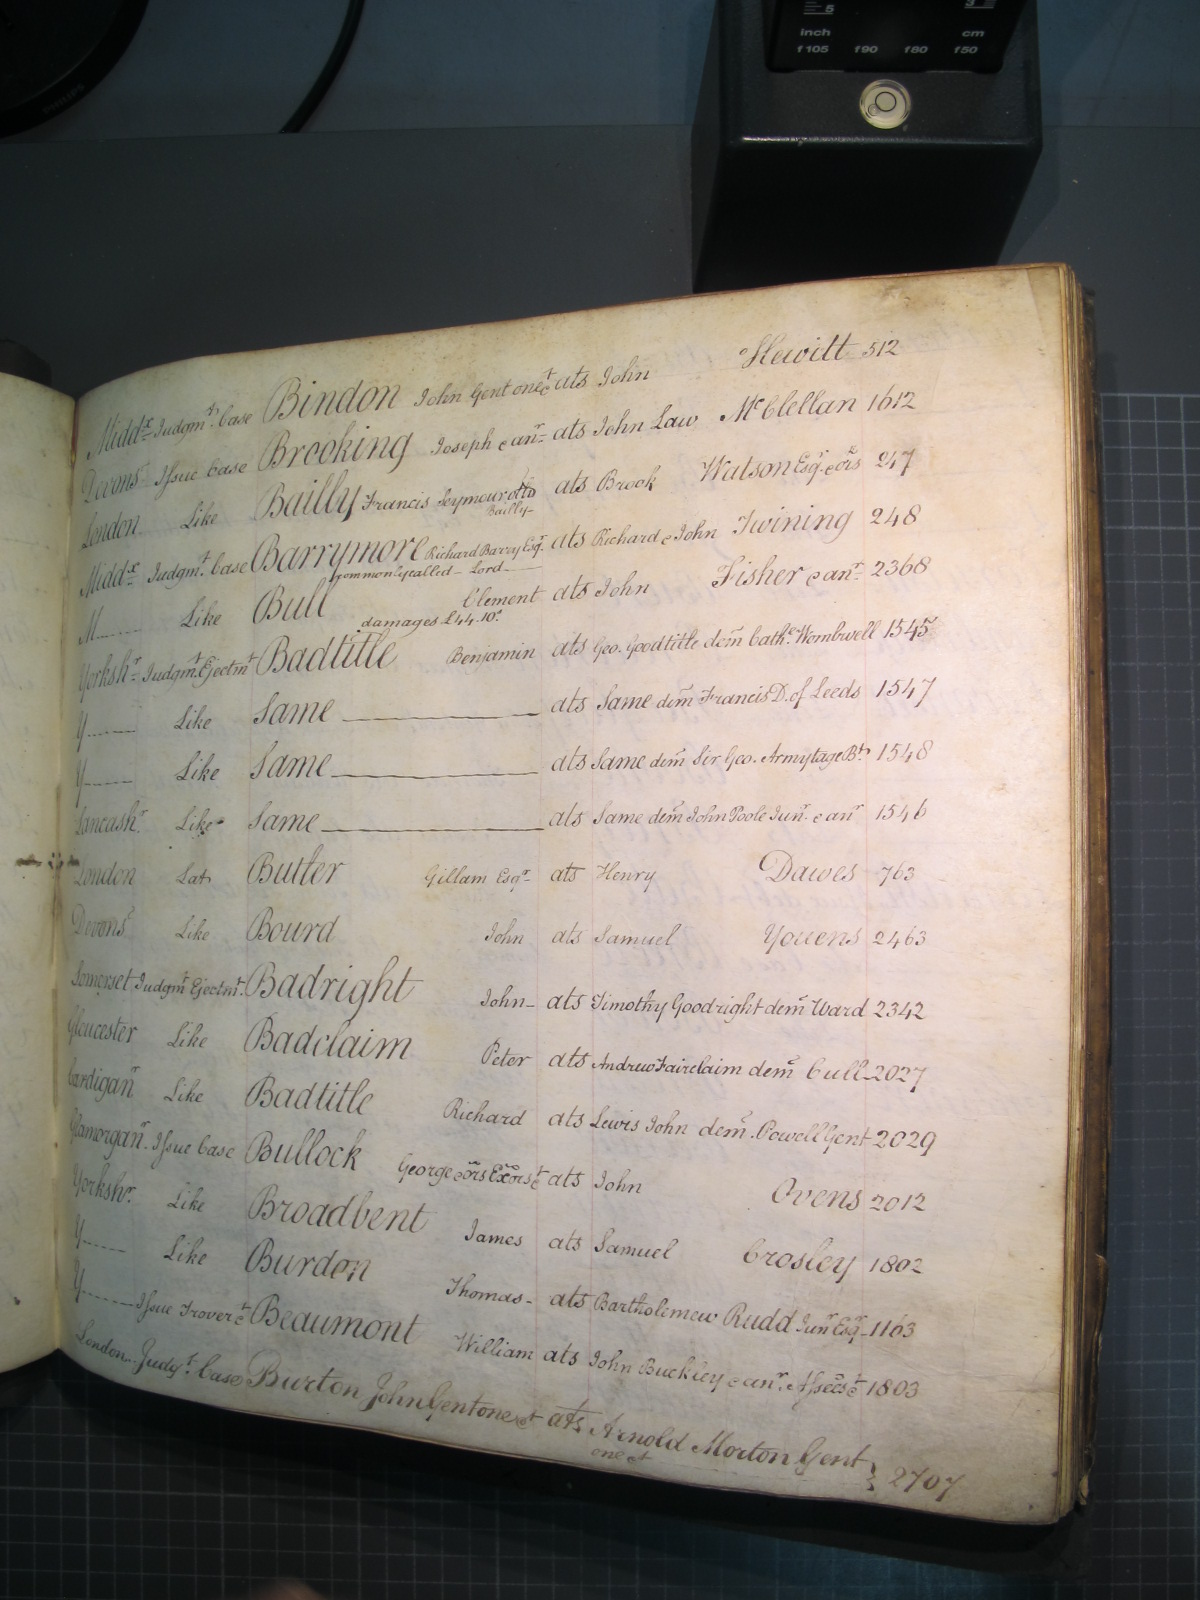 5 3
inch cm
f105 f90 f80 f50
PHILIPS
Midd.x Judgm.t Case Bindon John Gent one &c.t ats John Hewitt 512
Devons. Issue Case Brooking Joseph & an.r ats John Law McClellan 1612
London Like Bailly Francis Seymour otħo ats Brook Watson Esq.r & ors 247
Bailly
Midd.x Judgm.t Case Barrymore Richard Barry Esq.r ats Richard & John Twining 248
commonly called Lord
M Like Bull Clement ats John Fisher & an.r 2368
damages £44.10.s
Yorksh.r Judgm.t Ejectm.t Badtitle Benjamin ats Geo. Goodtitle dem̃ Cath.e Wombwell 1545
Y Like Same ats Same dem̃ Francis D. of Leeds 1547
Y Like Same ats Same dem̃ Sir Geo. Armytage B.t 1548
Lancash.r Like Same ats Same dem̃ John Poole Jun.r & an.r 1546
London Lat Butler Gillam Esq.r ats Henry Dawes 763
Devons Like Bourd John ats Samuel Youens 2463
Somerset Judgm.t Ejectm.t Badright John ats Timothy Goodright dem̃ Ward 2342
Gloucester Like Badclaim Peter ats Andrew Fairclaim dem̃ Cull 2027
Cardigan Like Badtitle Richard ats Lewis John dem̃. Powell Gent 2029
Glamorgan. Issue Case Bullock George & ors Exors &c.t ats John Ovens 2012
Yorksh.r Like Broadbent James ats Samuel Crosley 1802
Y Like Burdon Thomas ats Bartholemew Rudd Jun.r Esq.r 1163
Y Issue Trover &c.t Beaumont William ats John Buckley & an.r Assees &c.t 1803
London Judg.t Case Burton John Gent one &c.t ats Arnold Morton Gent 2707
one &c.t